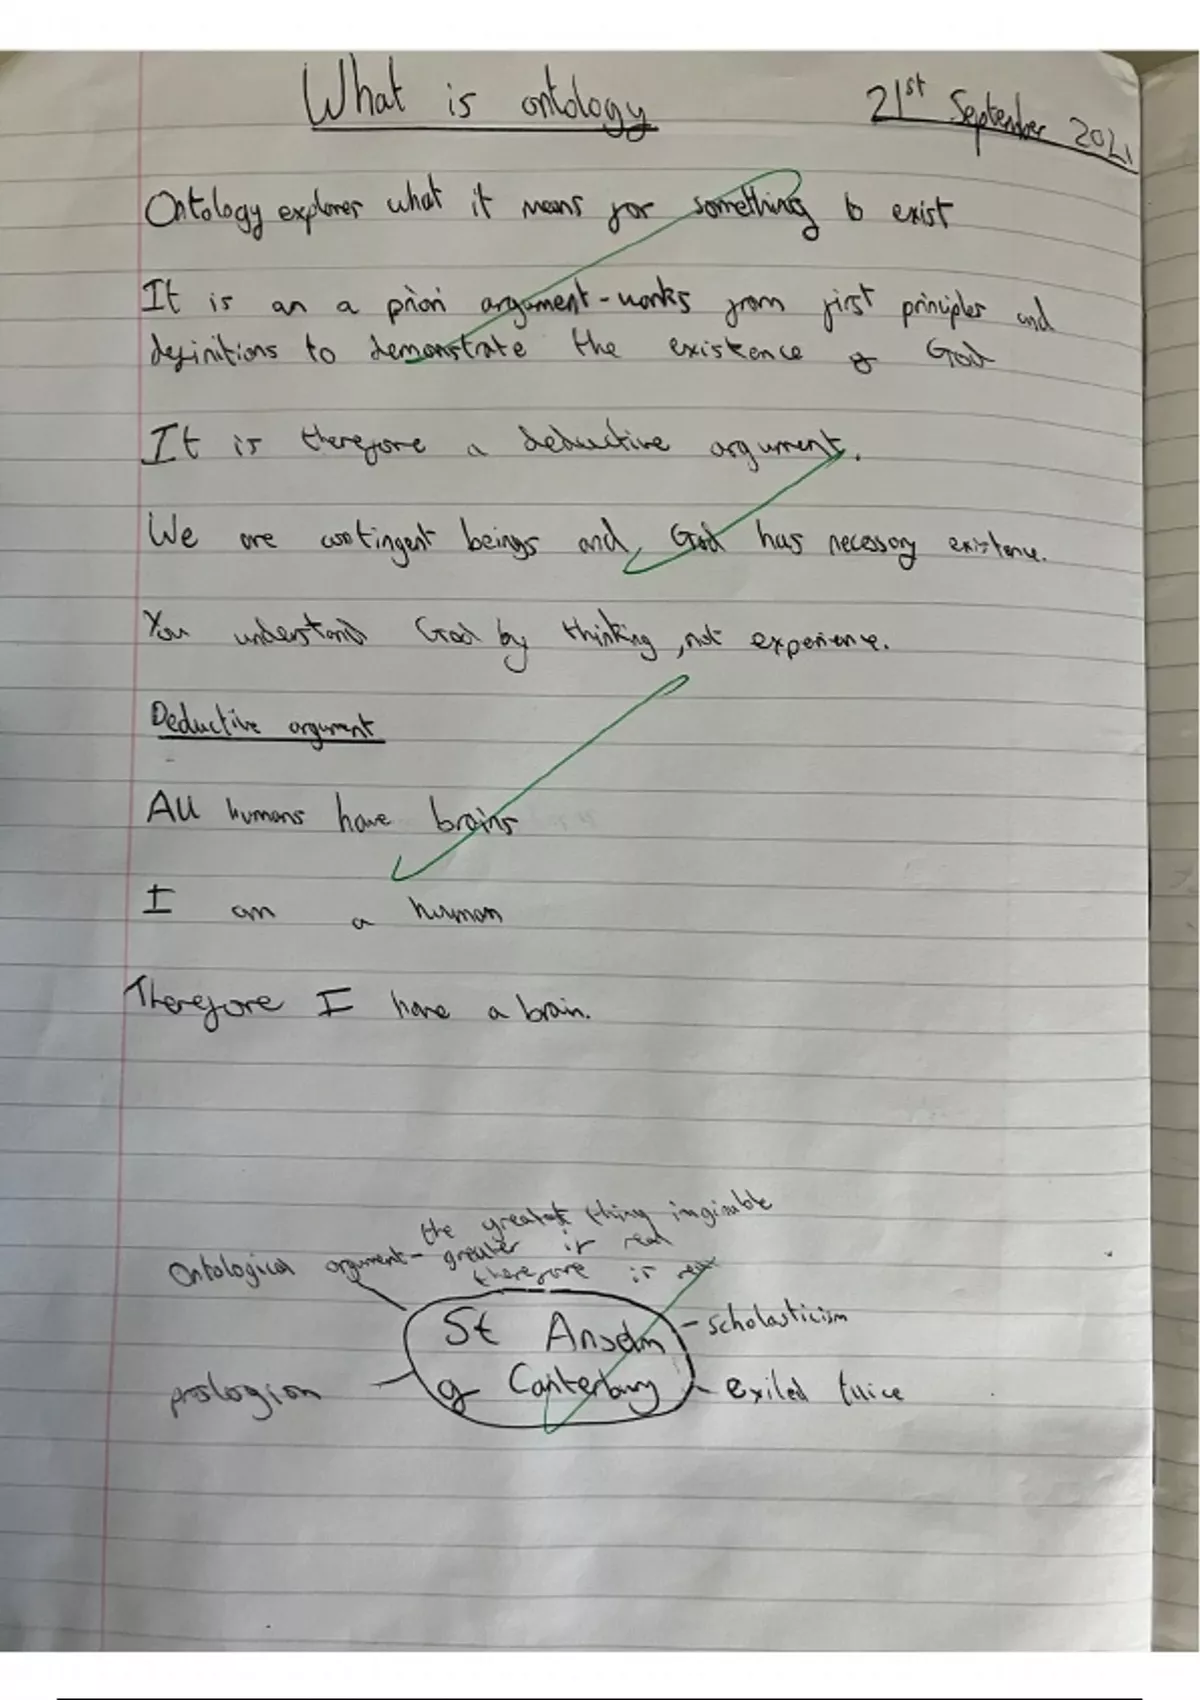 What is ontology
21st September 2021
Ontology explores what it means for something to exist
It is an a priori argument - works from first principles and
definitions to demonstrate the existence of God
It is therefore a deductive argument.
We are contingent beings and God has necessary existence.
You understand God by thinking, not experience.
Deductive argument
All humans have brains
I am a human
Therefore I have a brain.
the greatest thing imginable
Ontological argument - greater if real
therefore is real
St Anselm
of Canterbury
- scholasticism
proslogion
- exiled twice